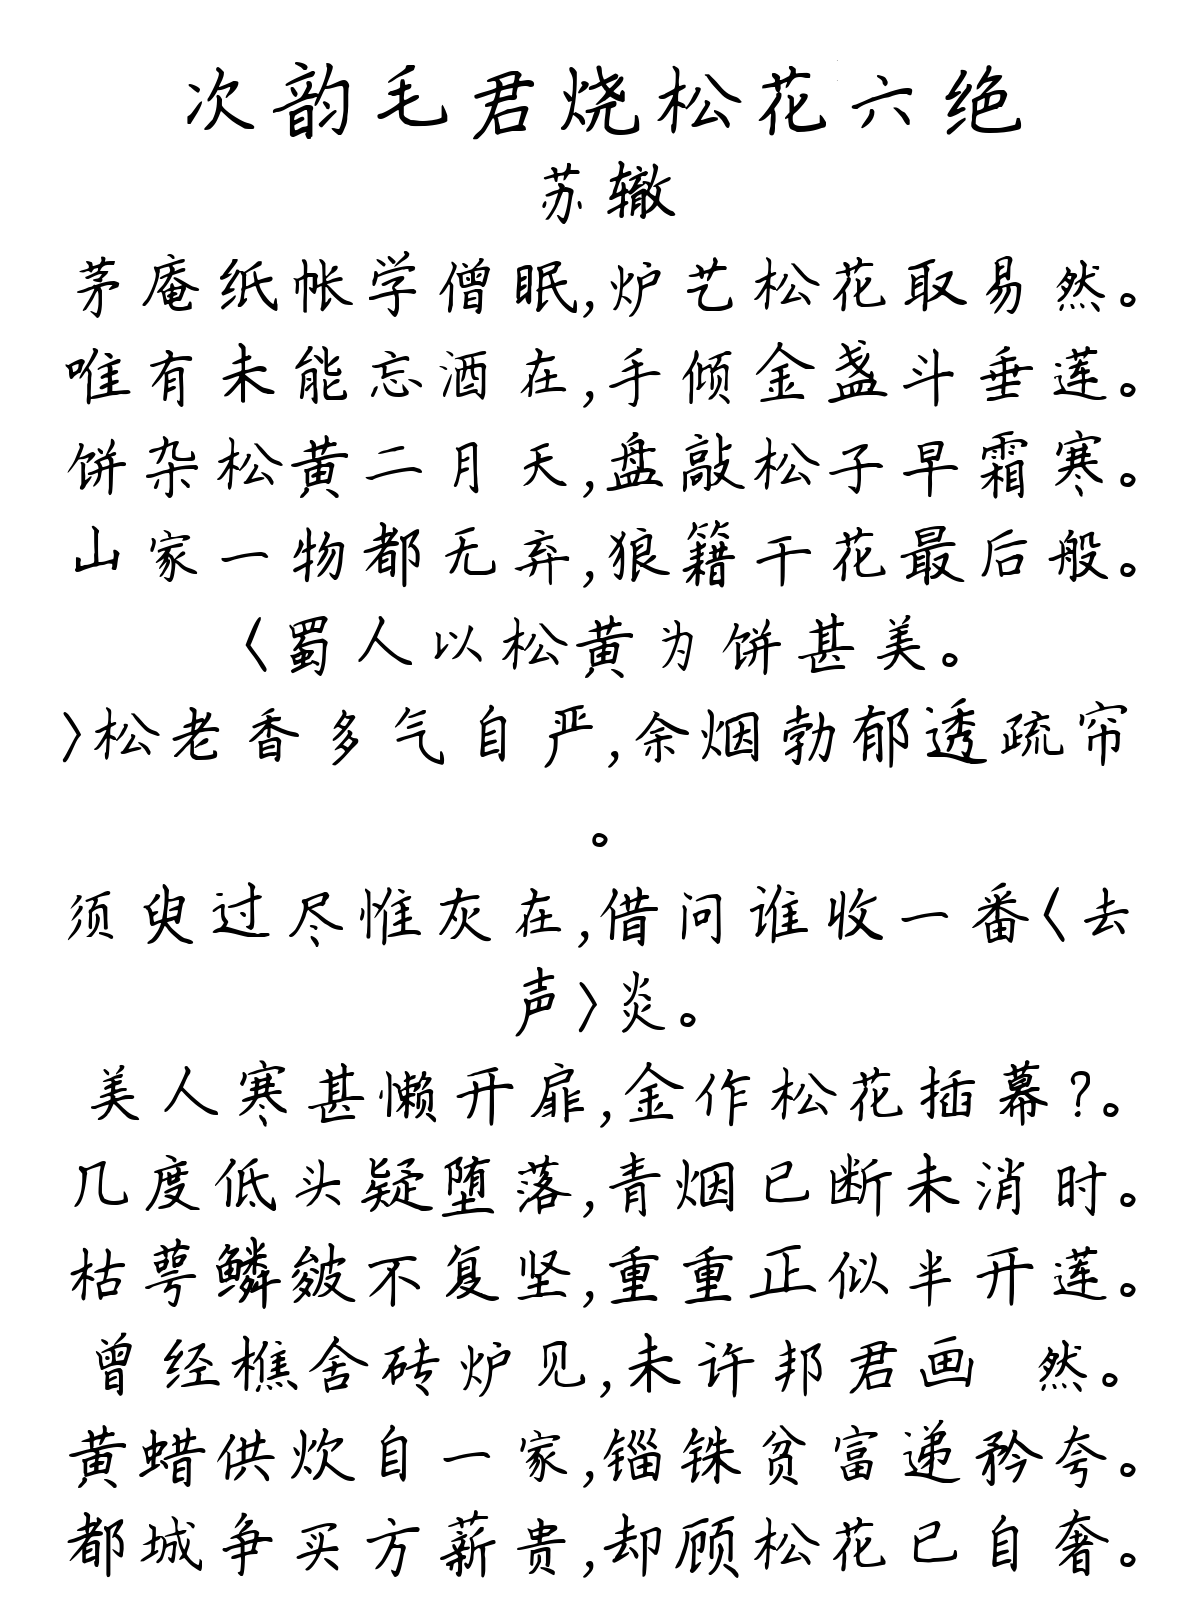 次韵毛君烧松花六绝
苏辙
茅庵纸帐学僧眠,炉艺松花取易然。
唯有未能忘酒在,手倾金盏斗垂莲。
饼杂松黄二月天,盘敲松子早霜寒。
山家一物都无弃,狼籍干花最后般。
〈蜀人以松黄为饼甚美。
〉松老香多气自严,余烟勃郁透疏帘
。
须臾过尽惟灰在,借问谁收一番〈去
声〉炎。
美人寒甚懒开扉,金作松花插幕?。
几度低头疑堕落,青烟已断未消时。
枯萼鳞皴不复坚,重重正似半开莲。
曾经樵舍砖炉见,未许邦君画 然。
黄蜡供炊自一家,锱铢贫富递矜夸。
都城争买方薪贵,却顾松花已自奢。